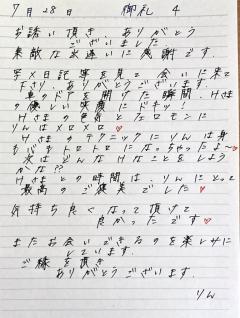 7月28日 御礼 4
お誘い頂き、ありがとう
ございました。
素敵な出逢いに感謝です。
写メ日記等を見て会いに来て
下さり、ありがとうございます。
車のドアを開けた瞬間、Hさま
の優しい笑顔にドキッ!
Hさまの声色とたなロモンに
りんはメロメロ♥
Hさまのテクニックにりんは身
も心もトロトロになっちゃったよ~♥
次はどんなHなことをしよう
かな??
Hさまとの時間は、りんにとって
最高のご褒美でした♥
気持ち良くなって頂けて
良かったです♥
またお会いできるのを楽しみに
しています。
ご縁を頂き
ありがとうございます
りん